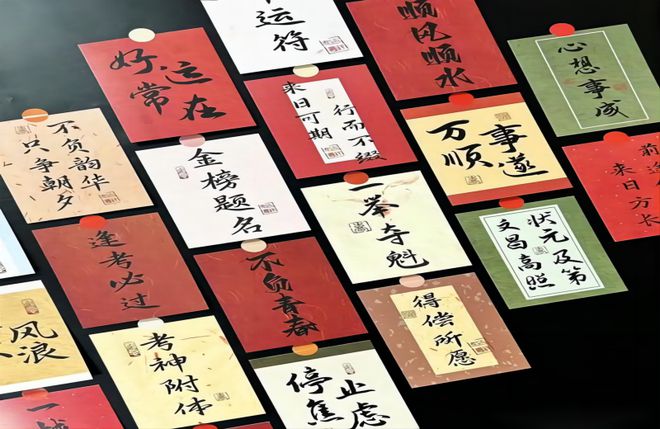 运符
顺风顺水
心想事成
好运
常在
行而不缀
来日可期
万事
顺遂
前
来日方长
不负韵华
只争朝夕
金榜题名
一举夺魁
状元及第
文昌高照
逢考必过
不负青春
得偿所愿
风浪
考神附体
停止
焦虑
一